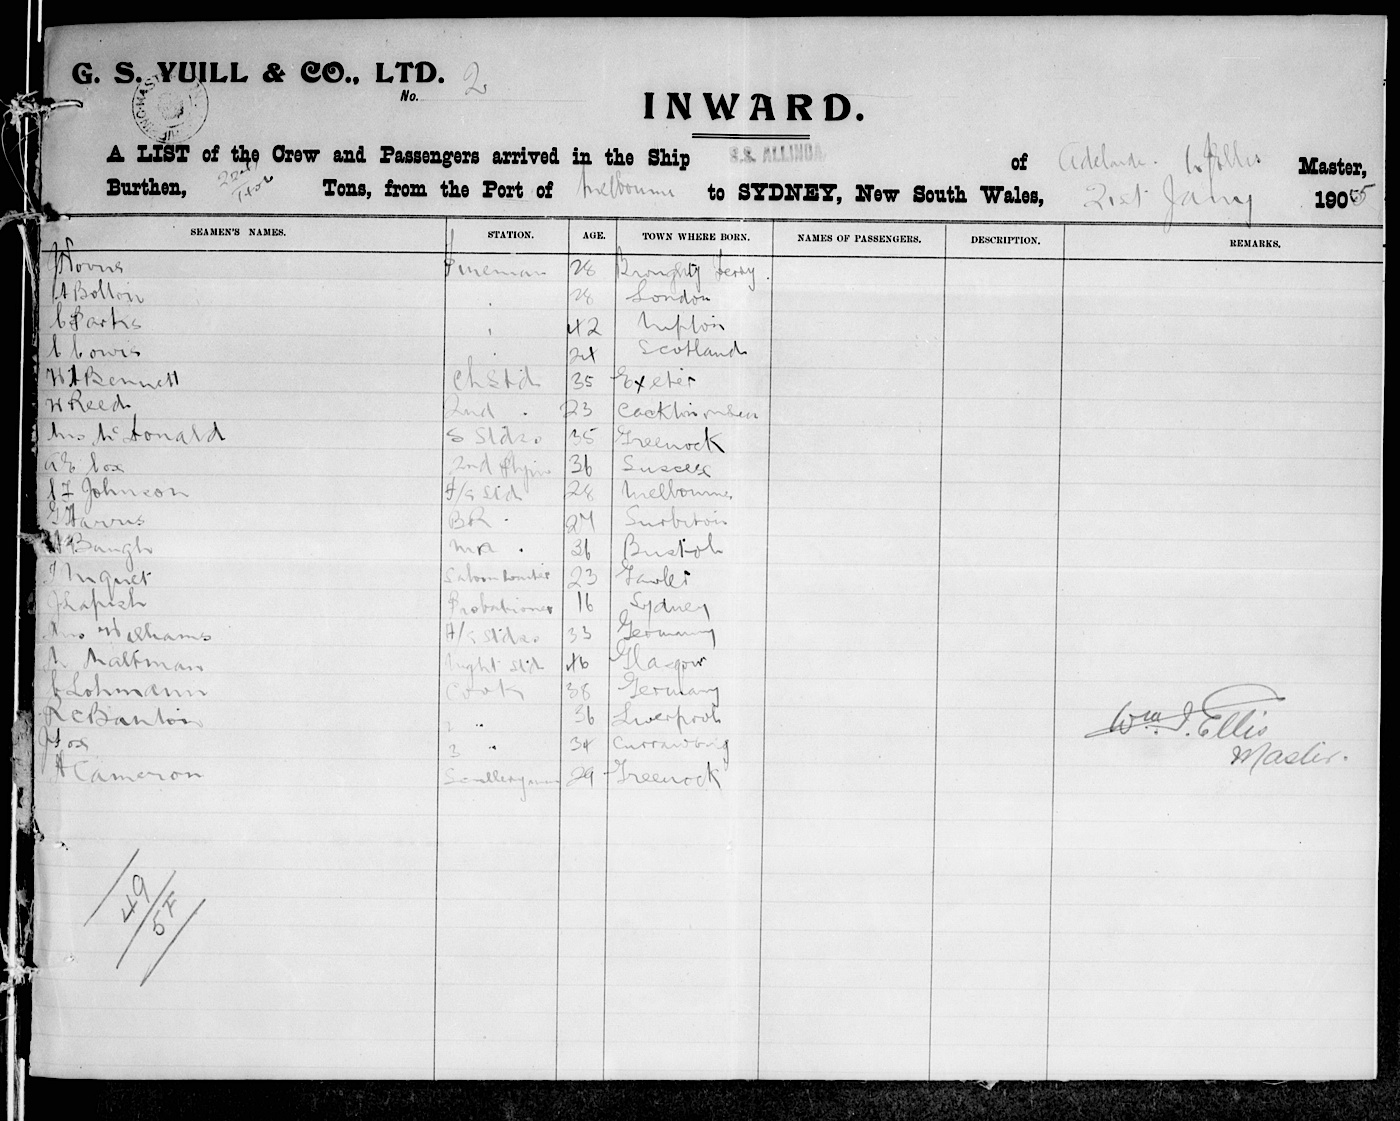 G. S. YUILL & CO., LTD.
No. 2
INWARD.
A LIST of the Crew and Passengers arrived in the Ship S.S. ALLINGA of Adelaide. Ellis Master,
Burthen, Tons, from the Port of Melbourne to SYDNEY, New South Wales, 21st Jany 1905
SEAMEN'S NAMES. STATION. AGE. TOWN WHERE BORN. NAMES OF PASSENGERS. DESCRIPTION. REMARKS.
Fireman 28 Broughty Ferry.
A Bolton " 28 London
C Parks " 42
C Cowie " 24 Scotland
H A Bennett Ch Std 35 Exeter
H Reed 2nd " 23
Mrs McDonald S Stdss 35 Greenock
A E Cox 2nd 36 Sussex
C F Johnson A/s Std 28 Melbourne
G Harris BR " 27 Surbiton
Baugh " 36 Bristol
Saloon Waiter 23 Gawler
J Lapish Probationer 16 Sydney
Mrs Williams A/s Stdss 33 Germany
M Maltman Night Std 46 Glasgow
C Lohmann Cook 38 Germany
R C Banton 2 " 36 Liverpool
J Fox 3 " 34
A Cameron Sculleryman 29 Greenock
Wm. J. Ellis
Master.
49/57